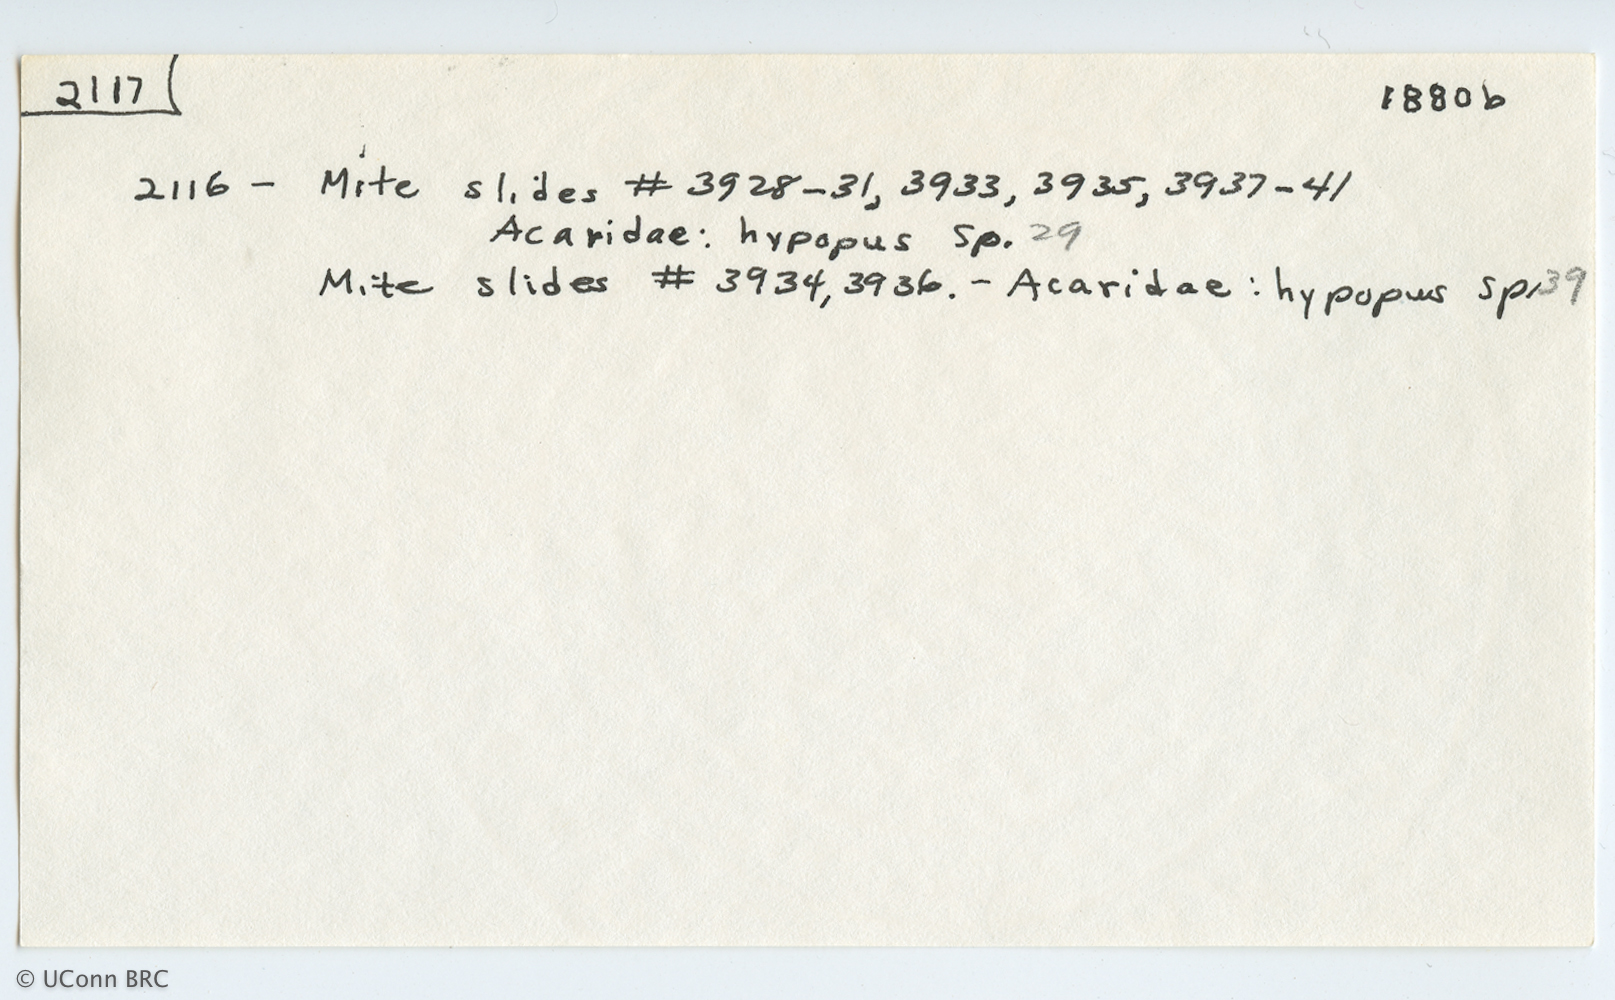 2117
18806
2116 - Mite slides # 3928-31, 3933, 3935, 3937-41
Acaridae: hypopus sp. 29
Mite slides # 3934, 3936. - Acaridae: hypopus sp. 39
© UConn BRC